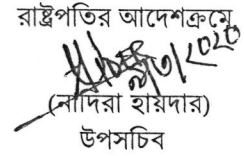 রাষ্ট্রপতির আদেশক্রমে
(নাদিরা হায়দার)
উপসচিব